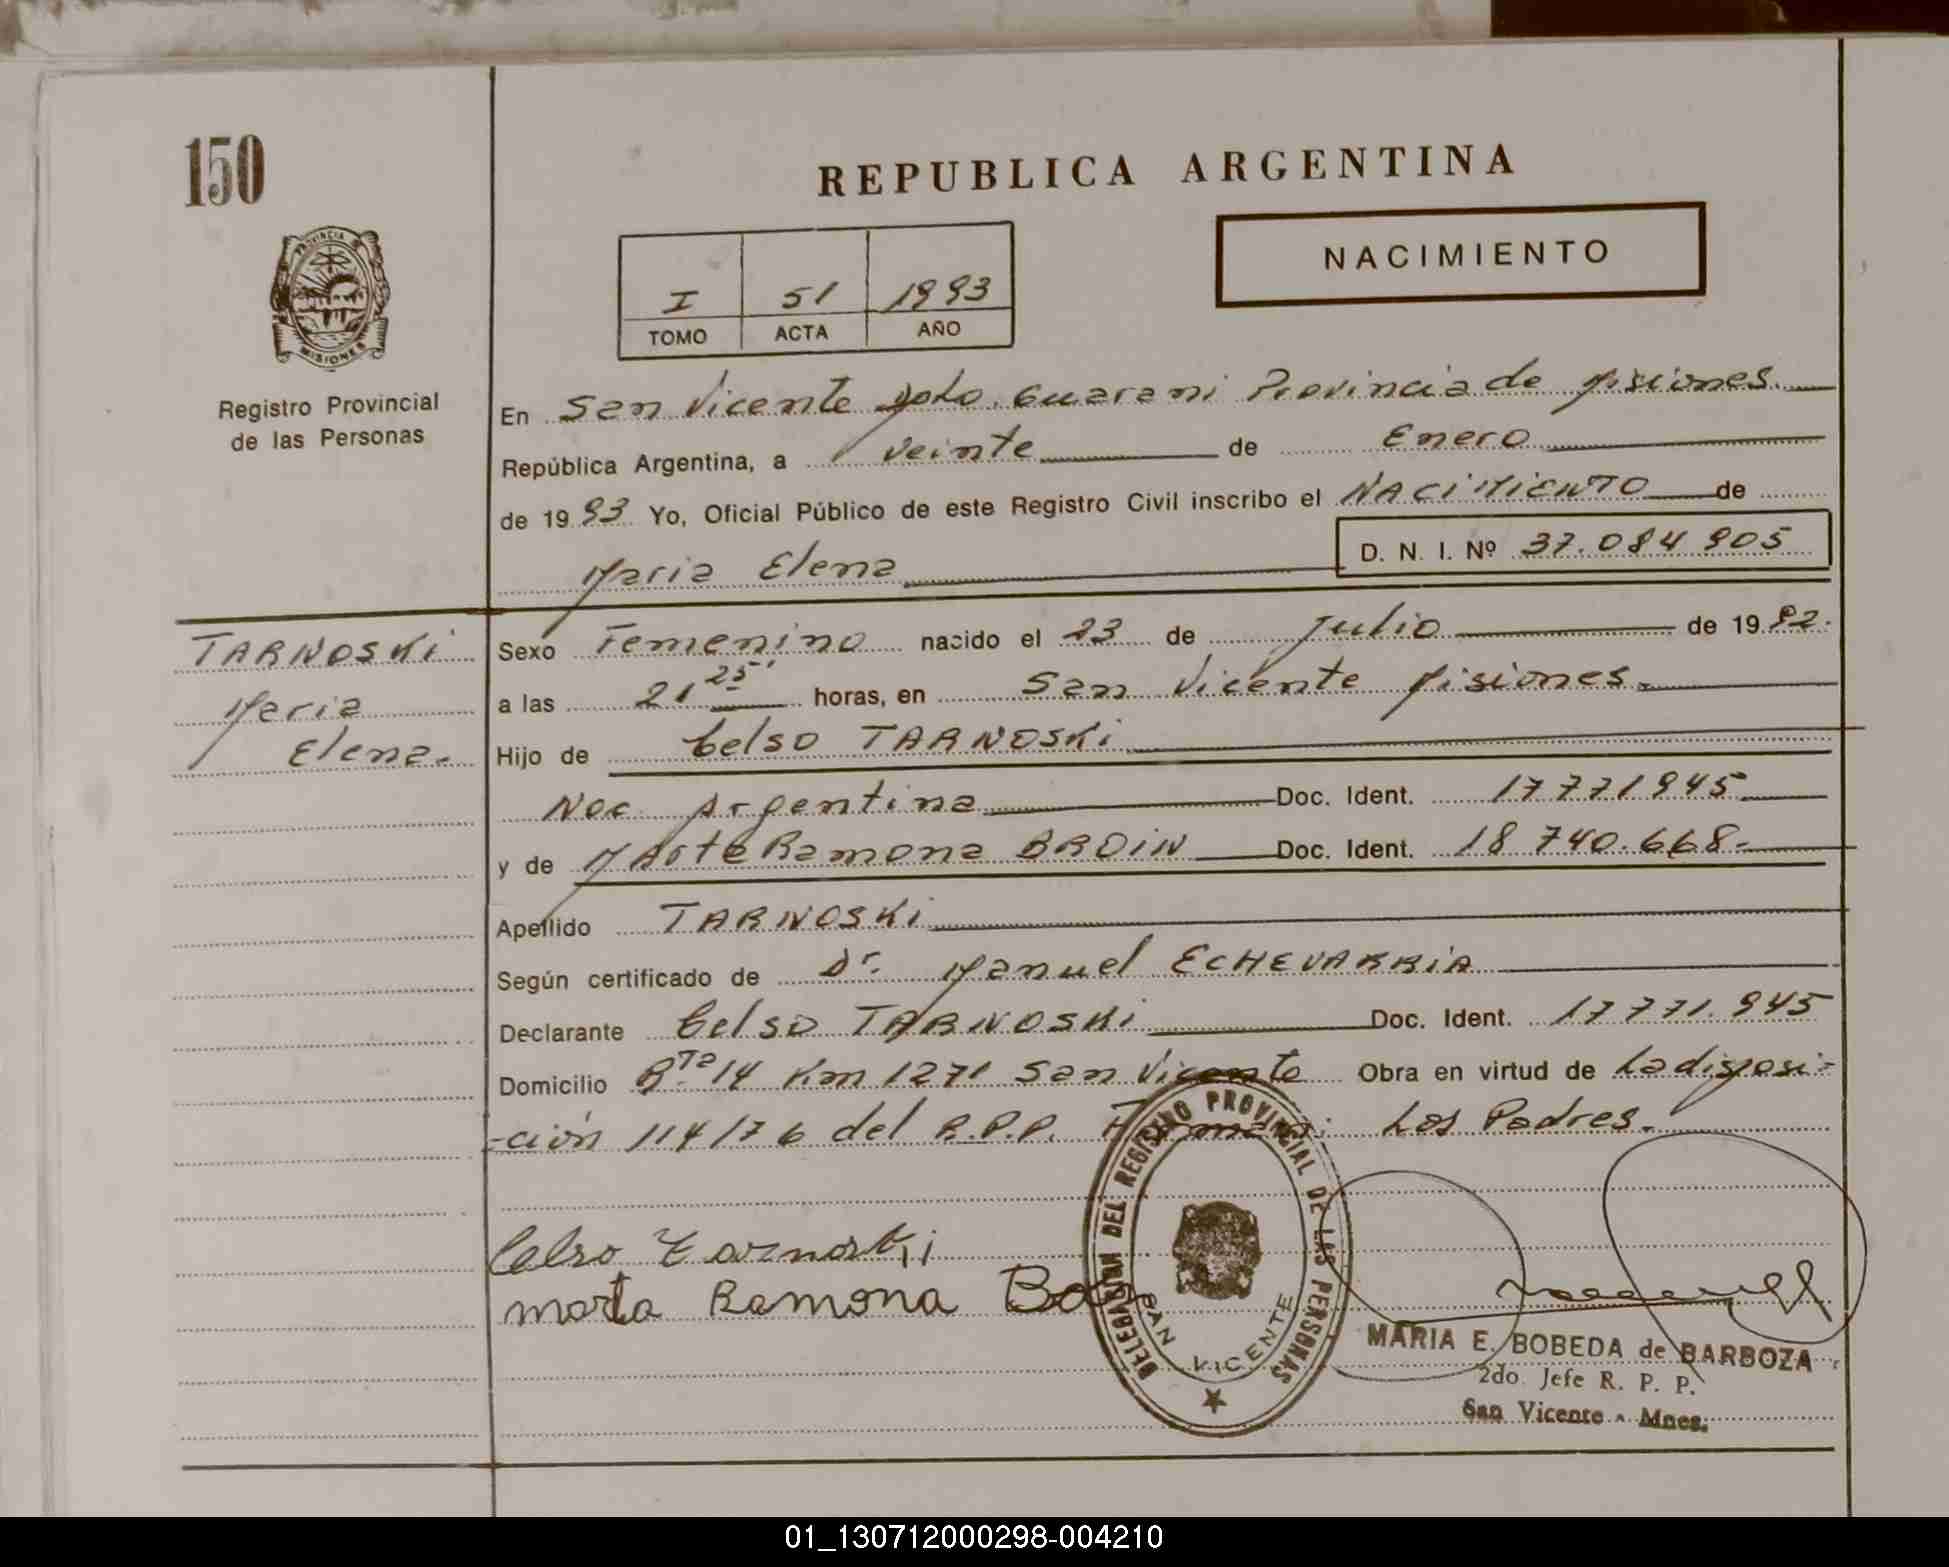 150
REPUBLICA ARGENTINA
NACIMIENTO
I 51 1993
TOMO ACTA AÑO
PROVINCIA DE
MISIONES
Registro Provincial
de las Personas
En San Vicente Dpto. Guarani Provincia de Misiones.
República Argentina, a veinte de Enero
de 1993 Yo, Oficial Público de este Registro Civil inscribo el NACIMIENTO de
Maria Elena D. N. I. Nº 37.084.905
TARNOSKI
Maria
Elena.
Sexo Femenino nacido el 23 de Julio de 1992.
a las 21 25' horas, en San Vicente Misiones.
Hijo de Celso TARNOSKI
Nac. Argentina Doc. Ident. 17771945
y de Marta Ramona BROIN Doc. Ident. 18 740.668.
Apellido TARNOSKI
Según certificado de Dr. Manuel ECHEVARRIA
Declarante Celso TARNOSKI Doc. Ident. 17771.945
Domicilio Rta 14 Km 1271 San Vicente Obra en virtud de La disposi-
-ción 114/76 del R.P.P. Firman: Los Padres.
Celso Tarnoski
marta Ramona
DELEGACION DEL REGISTRO PROVINCIAL DE LAS PERSONAS
SAN VICENTE
MARIA E. BOBEDA de BARBOZA
2do. Jefe R. P. P.
San Vicente - Mnes.
01_130712000298-004210